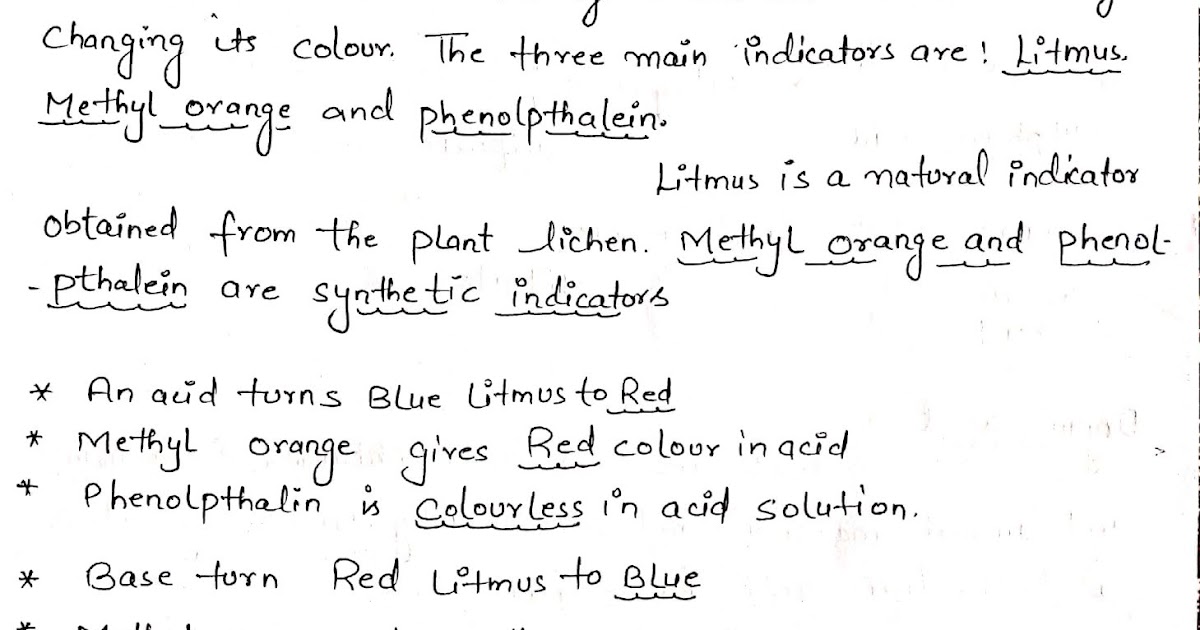 Changing its colour. The three main indicators are! Litmus.
Methyl orange and phenolpthalein.
Litmus is a natural indicator
obtained from the plant lichen. Methyl orange and phenol-
-pthalein are synthetic indicators
* An acid turns Blue Litmus to Red
* Methyl orange gives Red colour in acid
* Phenolpthalin is colourless in acid solution.
* Base turn Red Litmus to Blue